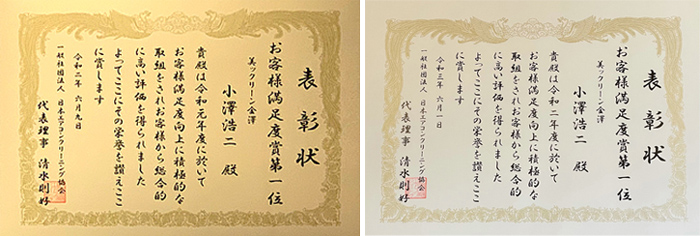 表彰状
お客様満足度賞第一位
美ックリーン金澤
小澤浩二 殿
貴殿は令和元年度に於いて
お客様満足度向上に積極的な
取組をされお客様から総合的
に高い評価を得られました
よってここにその栄誉を讃えここ
に賞します
令和二年 六月九日
一般社団法人 日本エアコンクリーニング協会
代表理事 清水則好
表彰状
お客様満足度賞第一位
美ックリーン金澤
小澤浩二 殿
貴殿は令和二年度に於いて
お客様満足度向上に積極的な
取組をされお客様から総合的
に高い評価を得られました
よってここにその栄誉を讃えここ
に賞します
令和三年 六月一日
一般社団法人 日本エアコンクリーニング協会
代表理事 清水則好